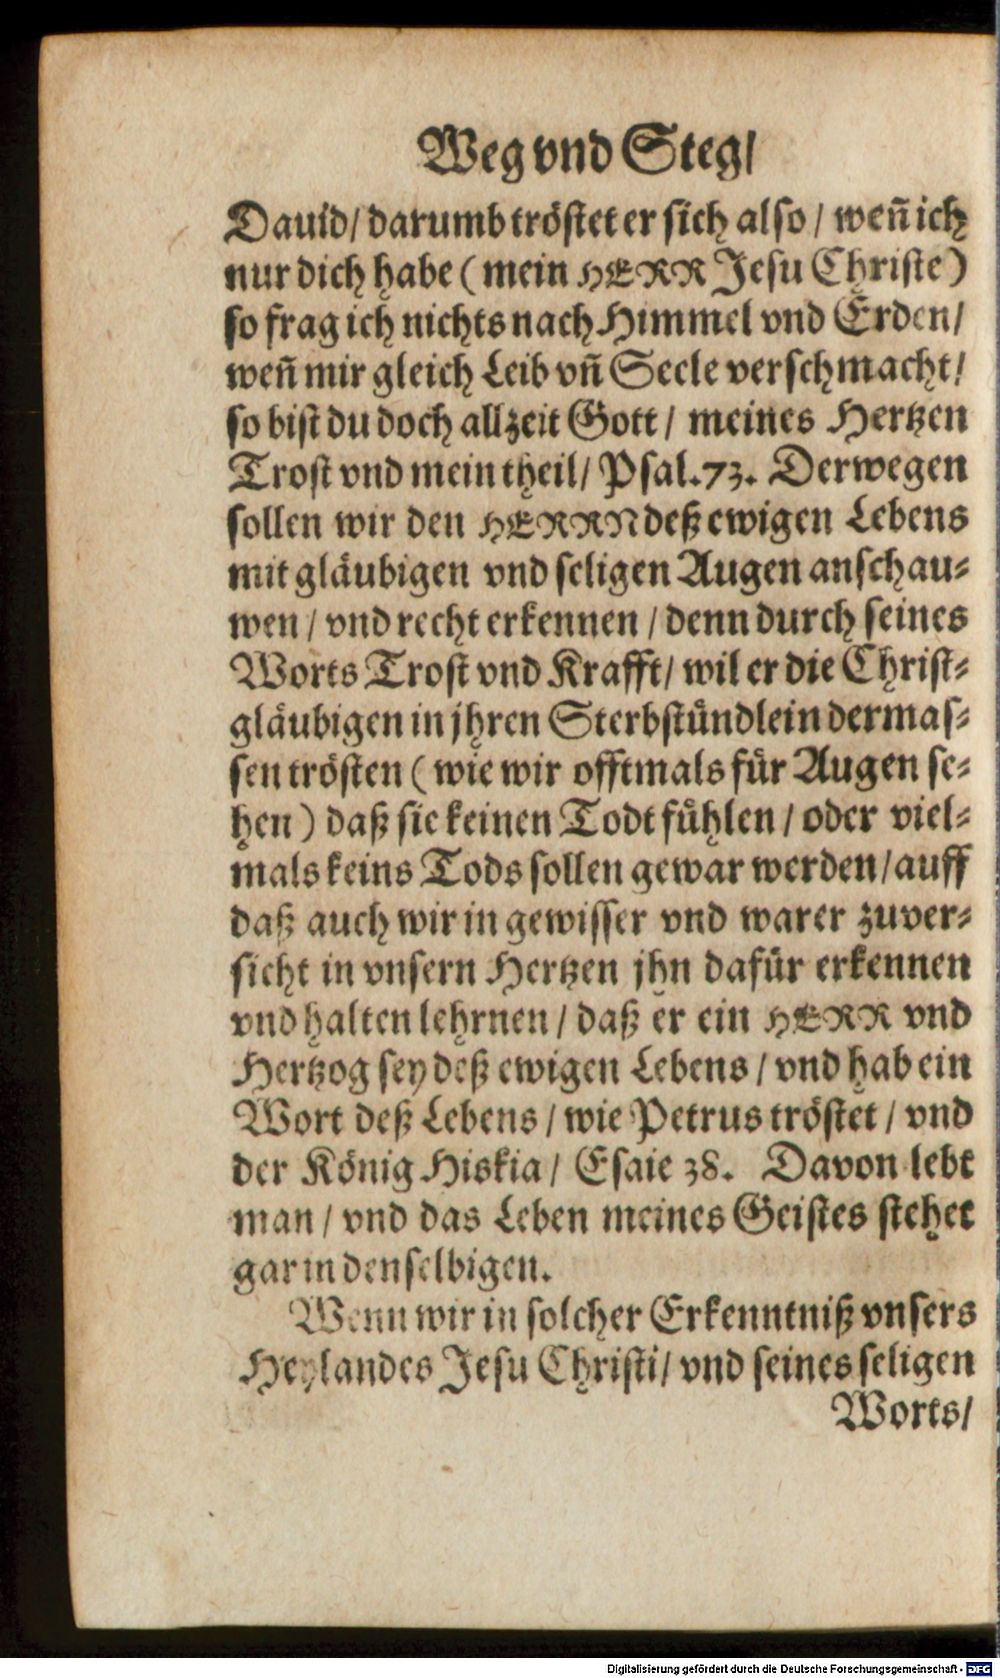 Weg vnd Steg/
Dauid/ darumb tröstet er sich also / weñ ich
nur dich habe ( mein HERR Jesu Christe )
so frag ich nichts nach Himmel vnd Erden/
weñ mir gleich Leib vñ Seele verschmacht/
so bist du doch allzeit Gott / meines Hertzen
Trost vnd mein theil/ Psal. 73. Derwegen
sollen wir den HERRN deß ewigen Lebens
mit gläubigen vnd seligen Augen anschau-
wen / vnd recht erkennen / denn durch seines
Worts Trost vnd Krafft/ wil er die Christ-
gläubigen in jhren Sterbstündlein dermas-
sen trösten ( wie wir offtmals für Augen se-
hen ) daß sie keinen Todt fühlen / oder viel-
mals keins Tods sollen gewar werden/ auff
daß auch wir in gewisser vnd warer zuver-
sicht in vnsern Hertzen jhn dafür erkennen
vnd halten lehrnen / daß er ein HERR vnd
Hertzog sey deß ewigen Lebens / vnd hab ein
Wort deß Lebens / wie Petrus tröstet / vnd
der König Hiskia/ Esaie 38. Davon lebt
man / vnd das Leben meines Geistes stehet
gar in denselbigen.
Wenn wir in solcher Erkenntniß vnsers
Heylandes Jesu Christi/ vnd seines seligen
Worts/
Digitalisierung gefördert durch die Deutsche Forschungsgemeinschaft - DFG